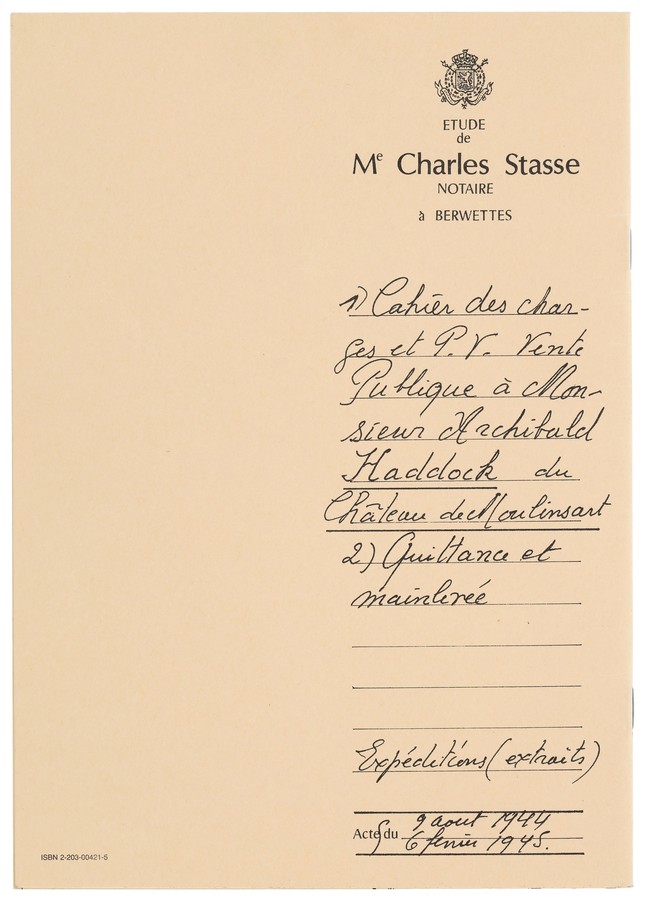 ETUDE
de
Me Charles Stasse
NOTAIRE
à BERWETTES
1) Cahier des char-
ges et P.V. Vente
Publique à Mon-
sieur Archibald
Haddock du
Château de Moulinsart
2) Quittance et
mainlevée
Expéditions (extraits)
Acte du 9 aout 1944
6 fevrier 1945.
ISBN 2-203-00421-5